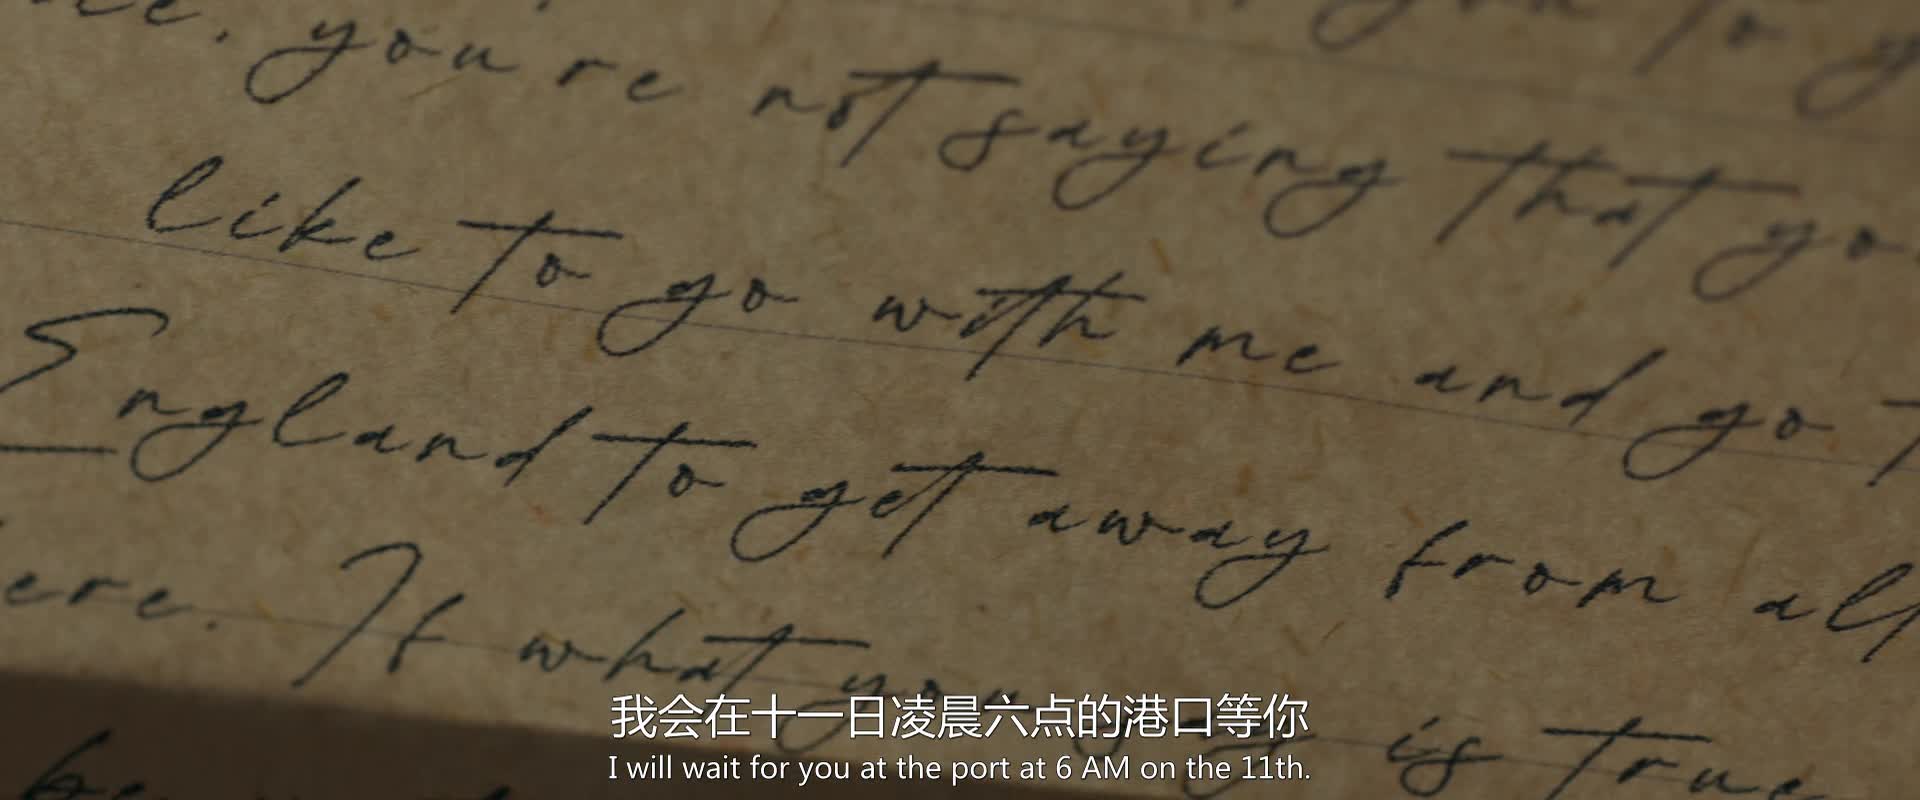 you're not saying that
like to go with me and go
England to get away from
ere. If what you is true
我会在十一日凌晨六点的港口等你
I will wait for you at the port at 6 AM on the 11th.